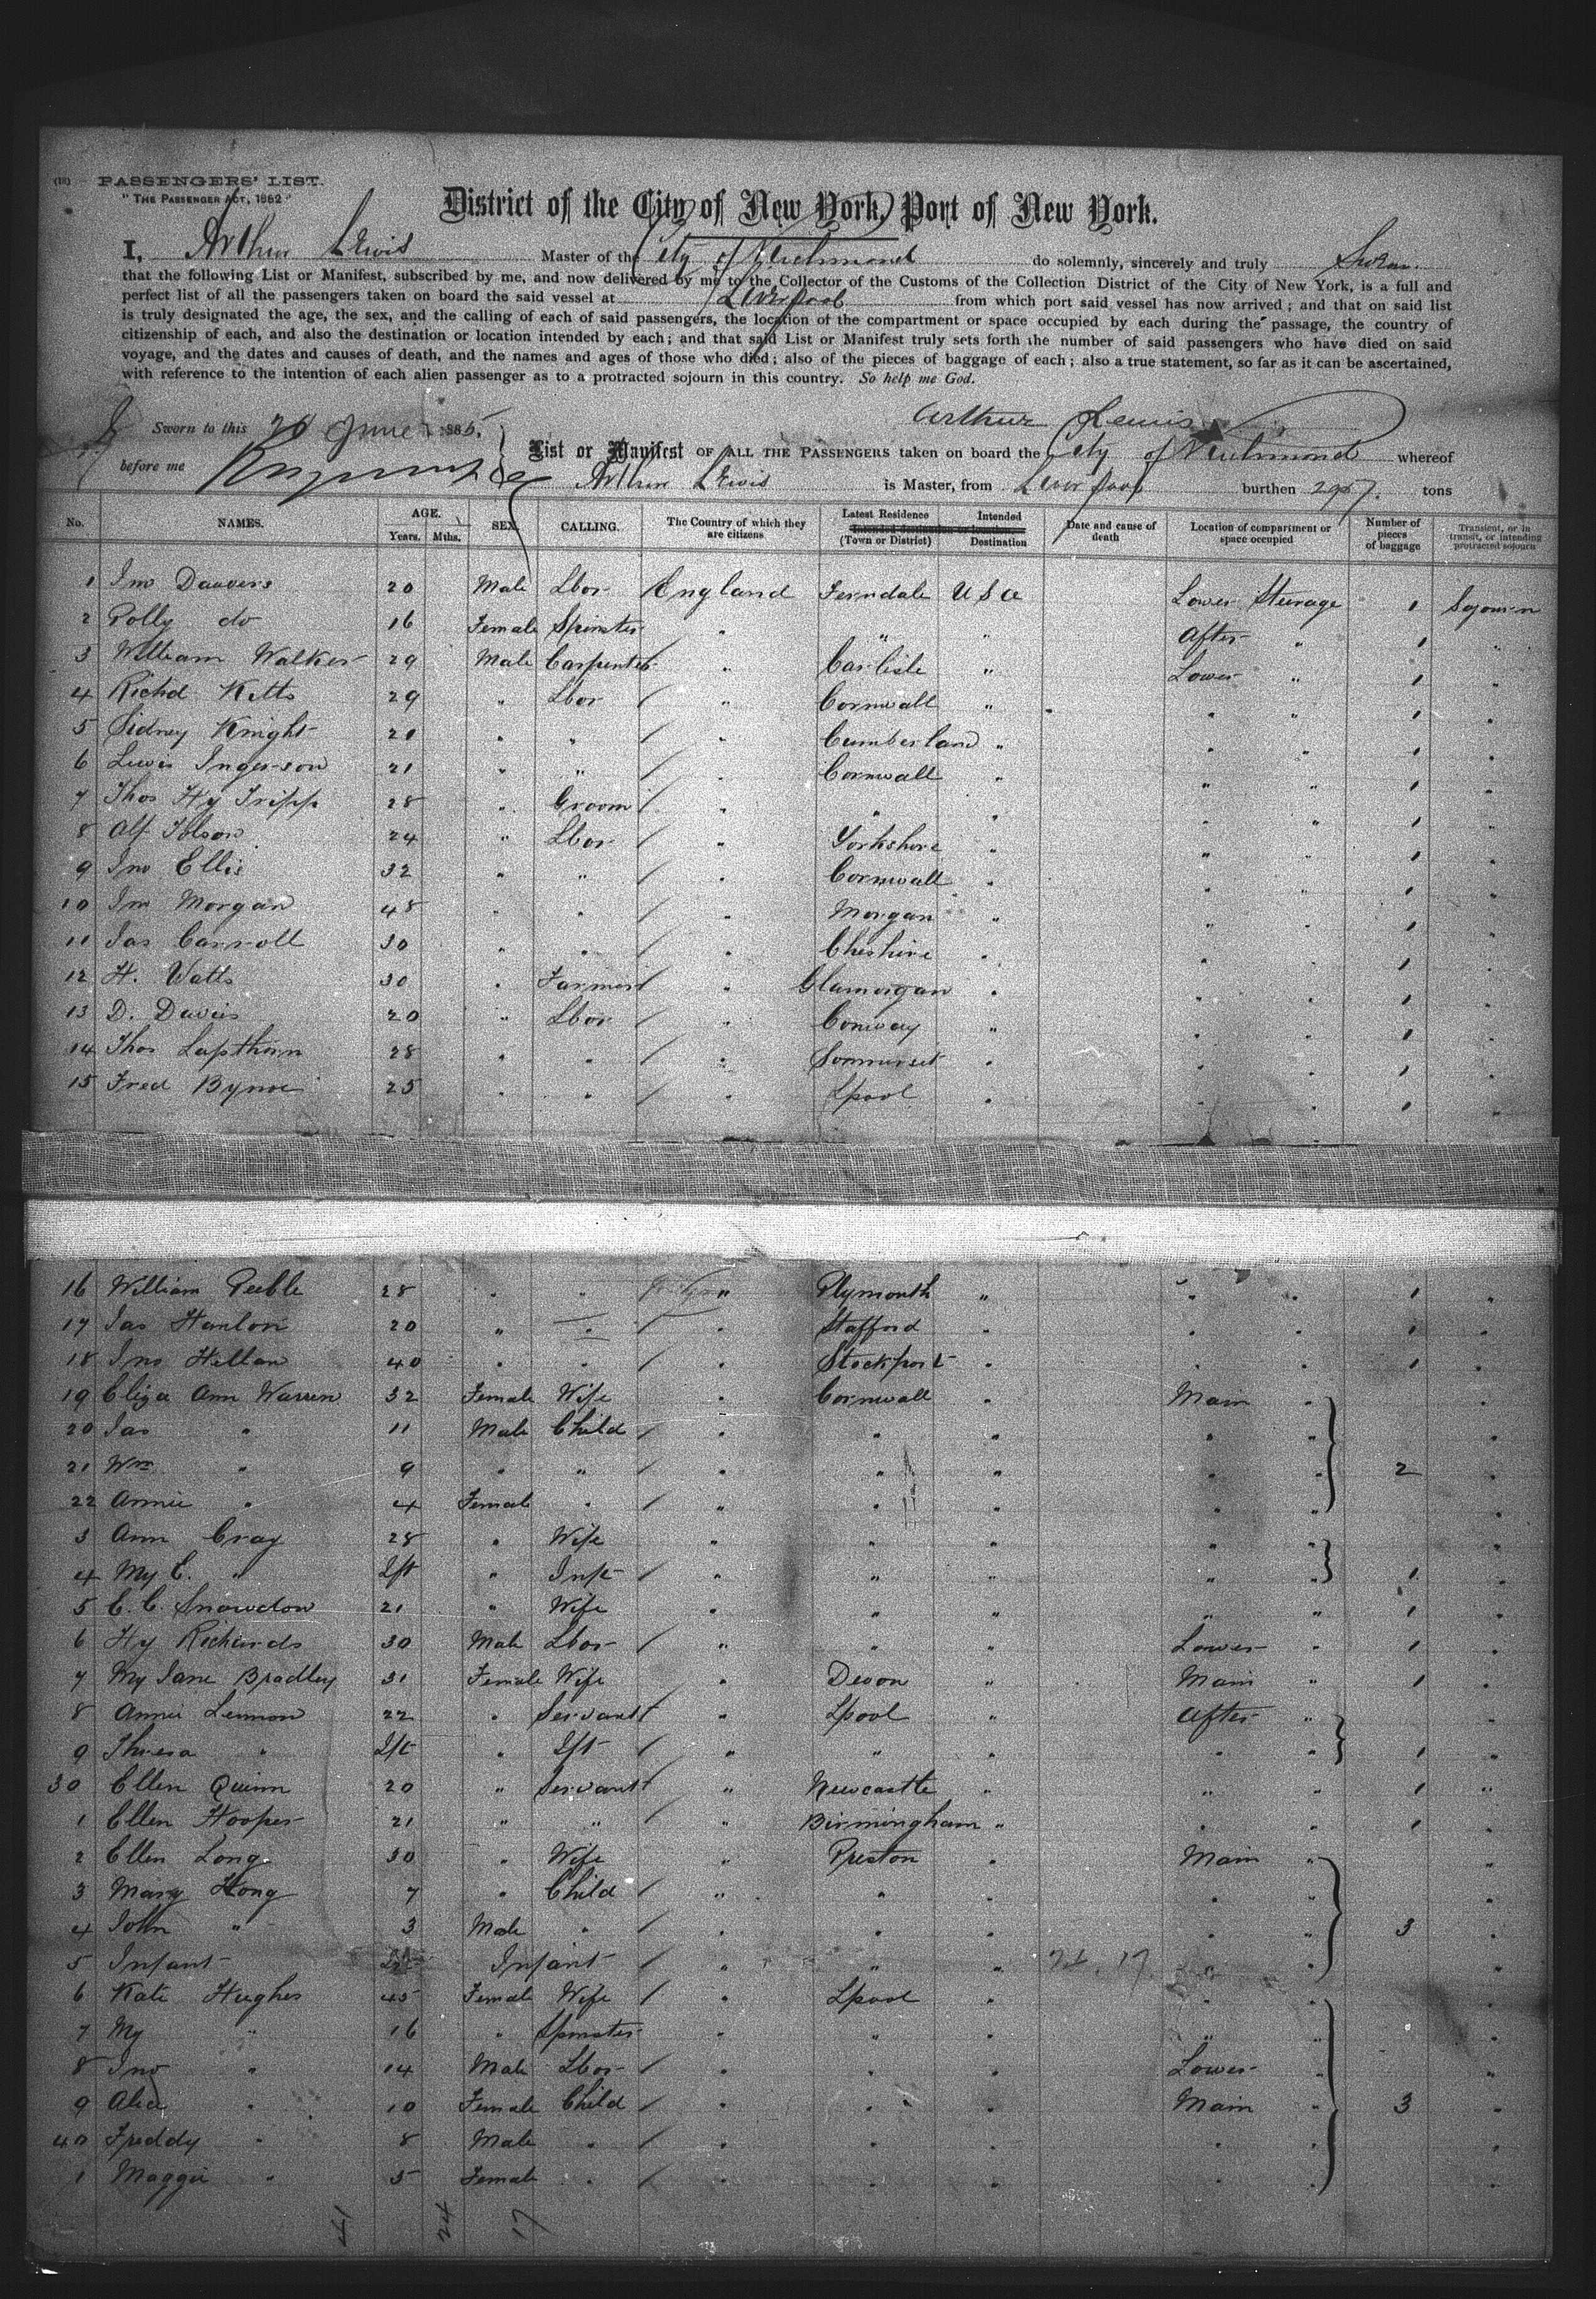 (18) PASSENGERS' LIST.
"THE PASSENGER ACT, 1882"
District of the City of New York, Port of New York.
I, Arthur Lewis Master of the City of Richmond do solemnly, sincerely and truly Swear
that the following List or Manifest, subscribed by me, and now delivered by me to the Collector of the Customs of the Collection District of the City of New York, is a full and
perfect list of all the passengers taken on board the said vessel at Liverpool from which port said vessel has now arrived; and that on said list
is truly designated the age, the sex, and the calling of each of said passengers, the location of the compartment or space occupied by each during the passage, the country of
citizenship of each, and also the destination or location intended by each; and that said List or Manifest truly sets forth the number of said passengers who have died on said
voyage, and the dates and causes of death, and the names and ages of those who died; also of the pieces of baggage of each; also a true statement, so far as it can be ascertained,
with reference to the intention of each alien passenger as to a protracted sojourn in this country. So help me God.
Arthur Lewis
Sworn to this June 1885.
List or Manifest OF ALL THE PASSENGERS taken on board the City of Richmond whereof
before me
Arthur Lewis is Master, from Liverpool burthen tons
No. NAMES. AGE. Years. Mths. SEX. CALLING. The Country of which they are citizens Latest Residence (Town or District) Intended Destination Date and cause of death Location of compartment or space occupied Number of pieces of baggage Transient, or in transit, or intending protracted sojourn
1 20 Male Lbor England Ferndale USA Lower Steerage 1 Sojourn
2 Polly do 16 Female Spinster " " " After " 1 "
3 William Walker 29 Male Carpenter " Carlisle " Lower " 1 "
4 Richd Kitts 29 " Lbor " Cornwall " " " 1 "
5 Sidney Knight 21 " " " Cumberland " " " 1 "
6 Lewis Ingerson 21 " " " Cornwall " " " 1 "
7 Thos Hy Tripp 28 " Groom " " " " " 1 "
8 Alf 24 " Lbor " Yorkshire " " " 1 "
9 Jno Ellis 32 " " " Cornwall " " " 1 "
10 Morgan 48 " " " Morgan " " " 1 "
11 Jas Carroll 30 " " " Cheshire " " " 1 "
12 H. Watts 30 " Farmer " Glamorgan " " " 1 "
13 D. Davies 20 " Lbor " Conway " " " 1 "
14 Thos Lapthorn 28 " " " Sommerset " " " 1 "
15 Fred Byrne 25 " " " Lpool " " " 1 "
16 William Peeble 28 " " " Plymouth " " " 1 "
17 Jas Hanlon 20 " " " Stafford " " " 1 "
18 Jno 40 " " " Stockport " " " 1 "
19 Eliza Ann Warren 32 Female Wife " Cornwall " Main " "
20 Jas " 11 Male Child " " " " " "
21 Wm " 9 " " " " " " " 2 "
22 Annie " 4 Female " " " " " " "
3 Ann Cray 28 " Wife " " " " " "
4 My E. " Ift " Inft " " " " " 1 "
5 C. C. Snowdon 21 " Wife " " " " " 1 "
6 Hy Richards 30 Male Lbor " " " Lower " 1 "
7 My Jane Bradley 31 Female Wife " Devon " Main " 1 "
8 Annie Lennon 22 " Servant " Lpool " After " "
9 Thresa " Ift " Ift " " " " " 1 "
30 Ellen Quinn 20 " Servant " Newcastle " " " 1 "
1 Ellen Hooper 21 " " " Birmingham " " " 1 "
2 Ellen Long 30 " Wife " Preston " Main " "
3 Mary Long 7 " Child " " " " " "
4 John " 3 Male " " " " " " 3 "
5 Infant Infant " " " " " "
6 Kate Hughes 45 Female Wife " Lpool " " " "
7 My " 16 " Spinster " " " " " "
8 Jno " 14 Male Lbor " " " Lower " "
9 Alice " 10 Female Child " " " Main " 3 "
40 Freddy " 8 Male " " " " " " "
1 Maggie " 5 Female " " " " " " "
41 24 17